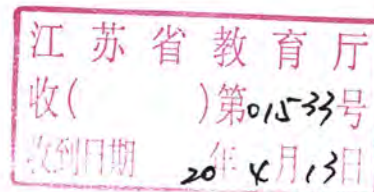 江苏省教育厅
收( )第01533号
收到日期 20年4月13日